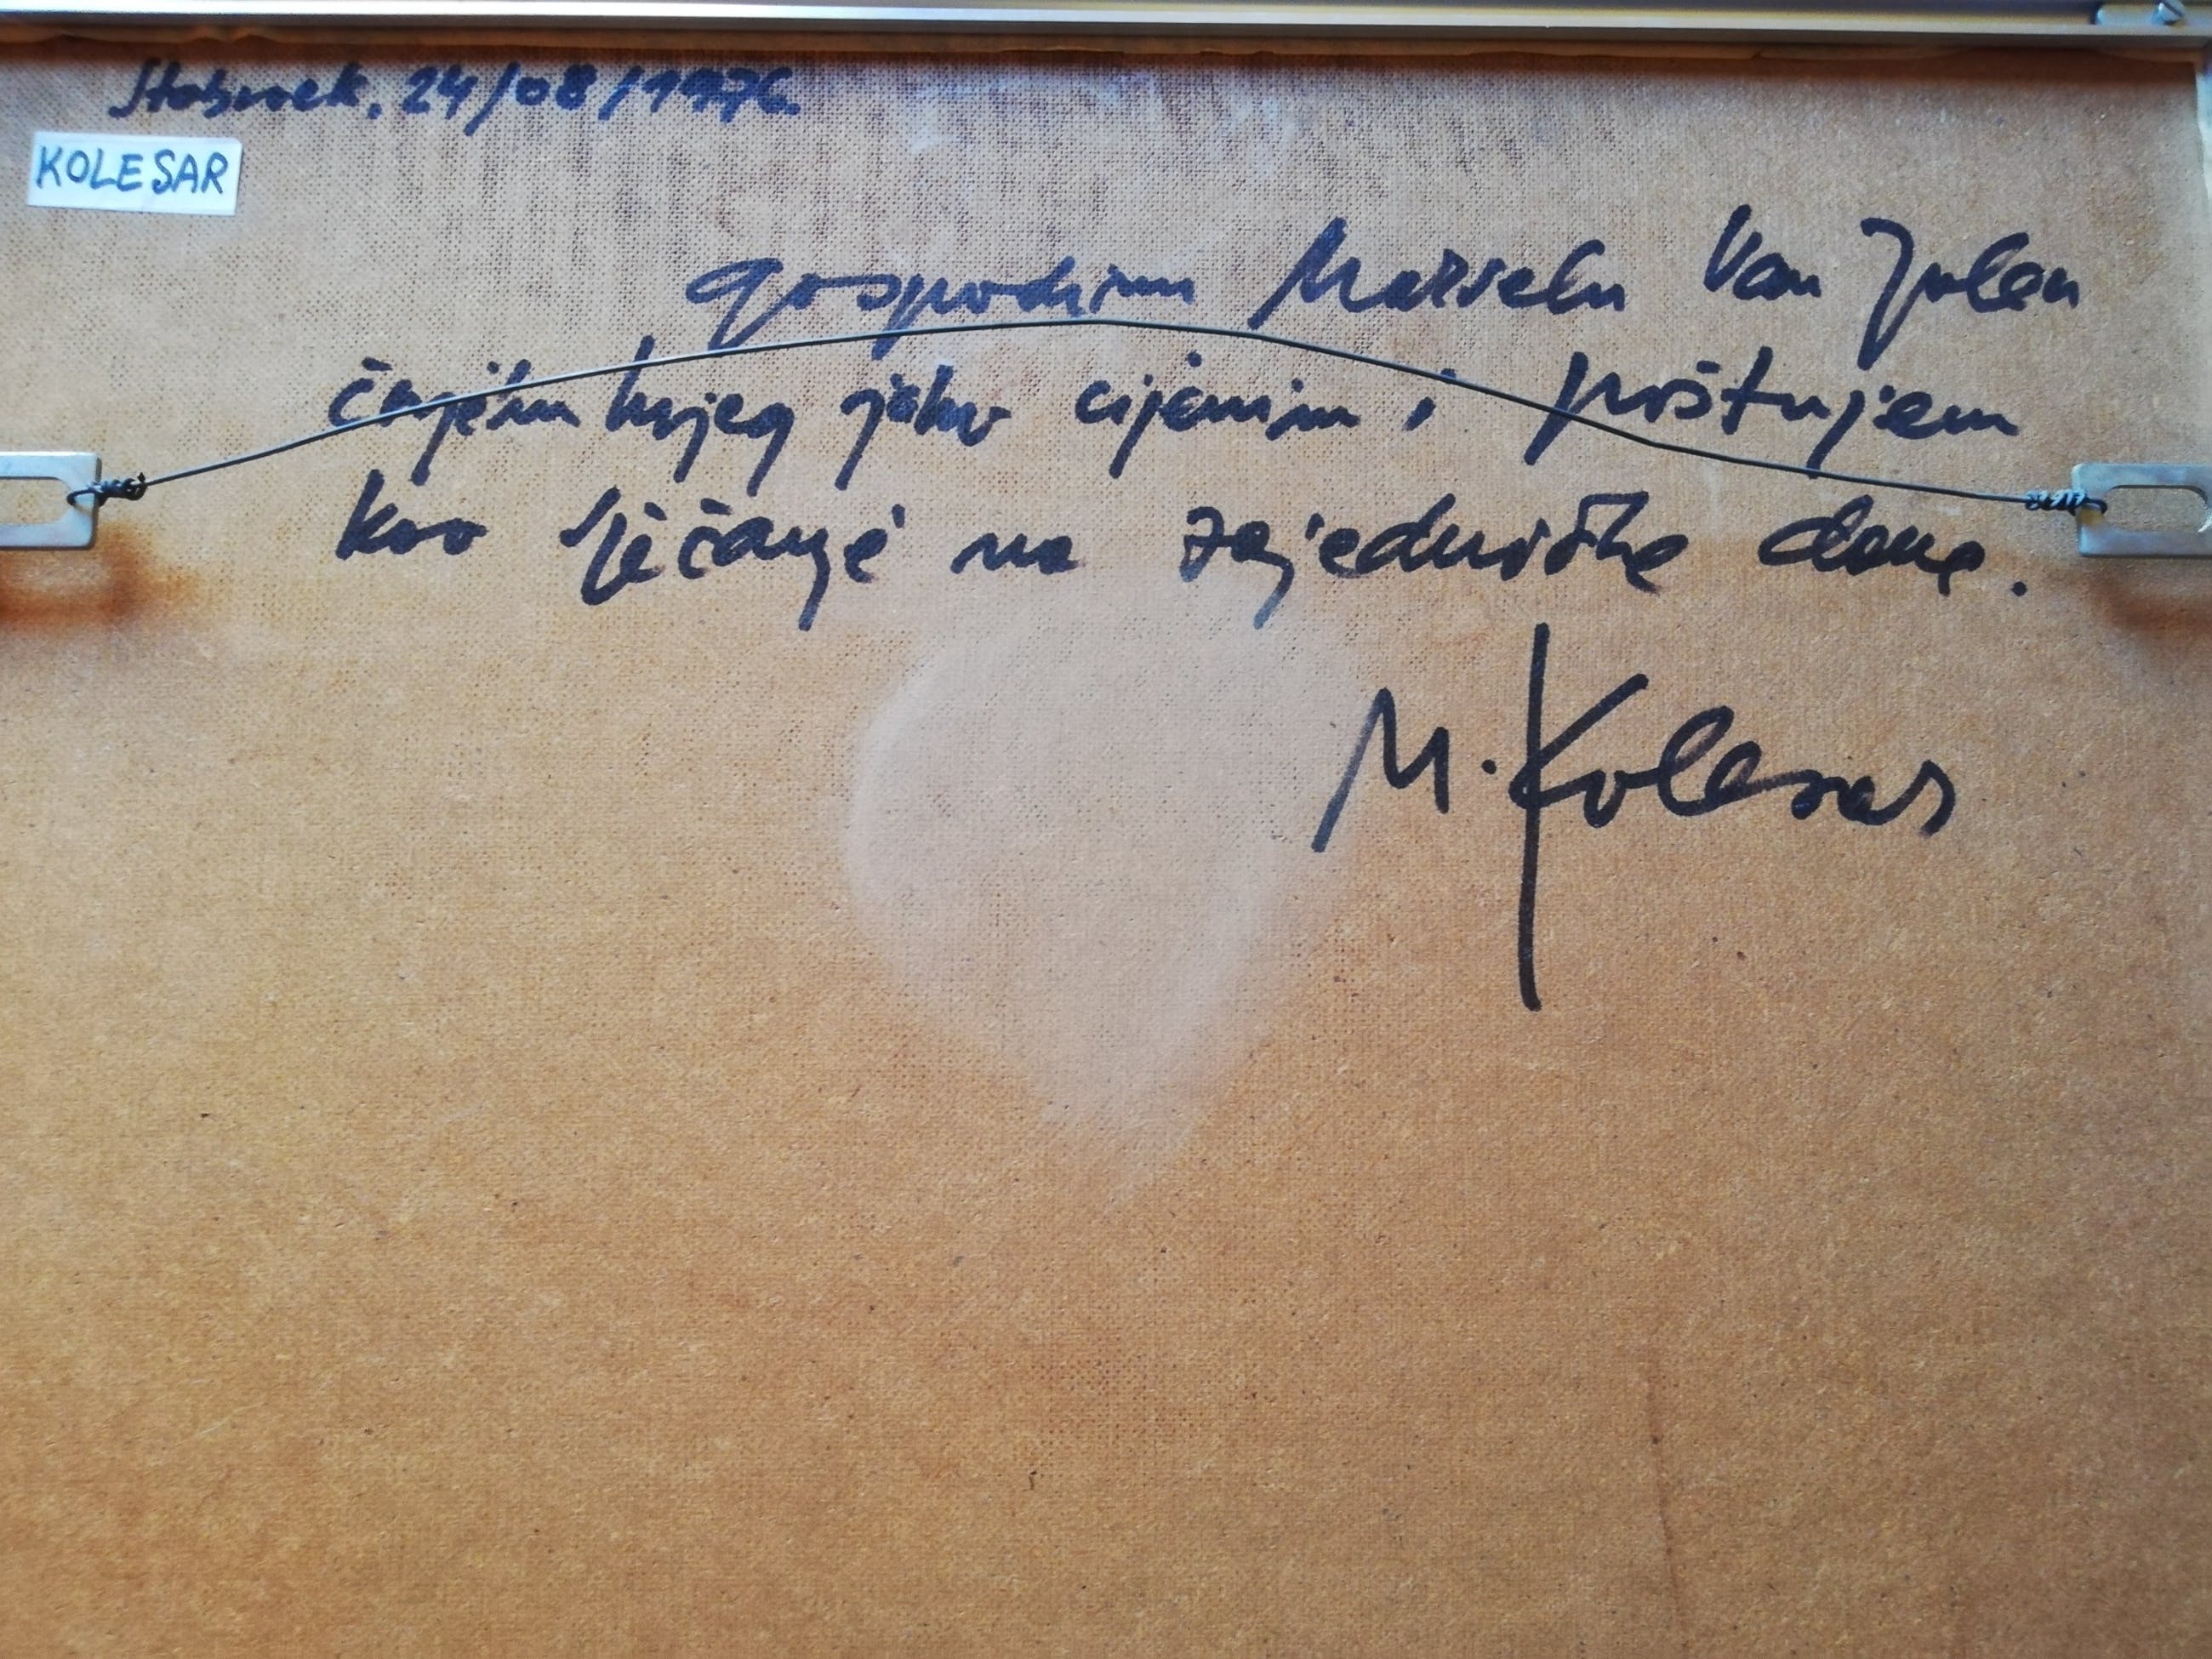 Stobrček, 24/08/1976.
KOLESAR
gospodinu Marselu Van Jolen
čovjeku kojeg jako cijenim i poštujem
kao sjećanje na zajedničke dane.
M. Kolesar